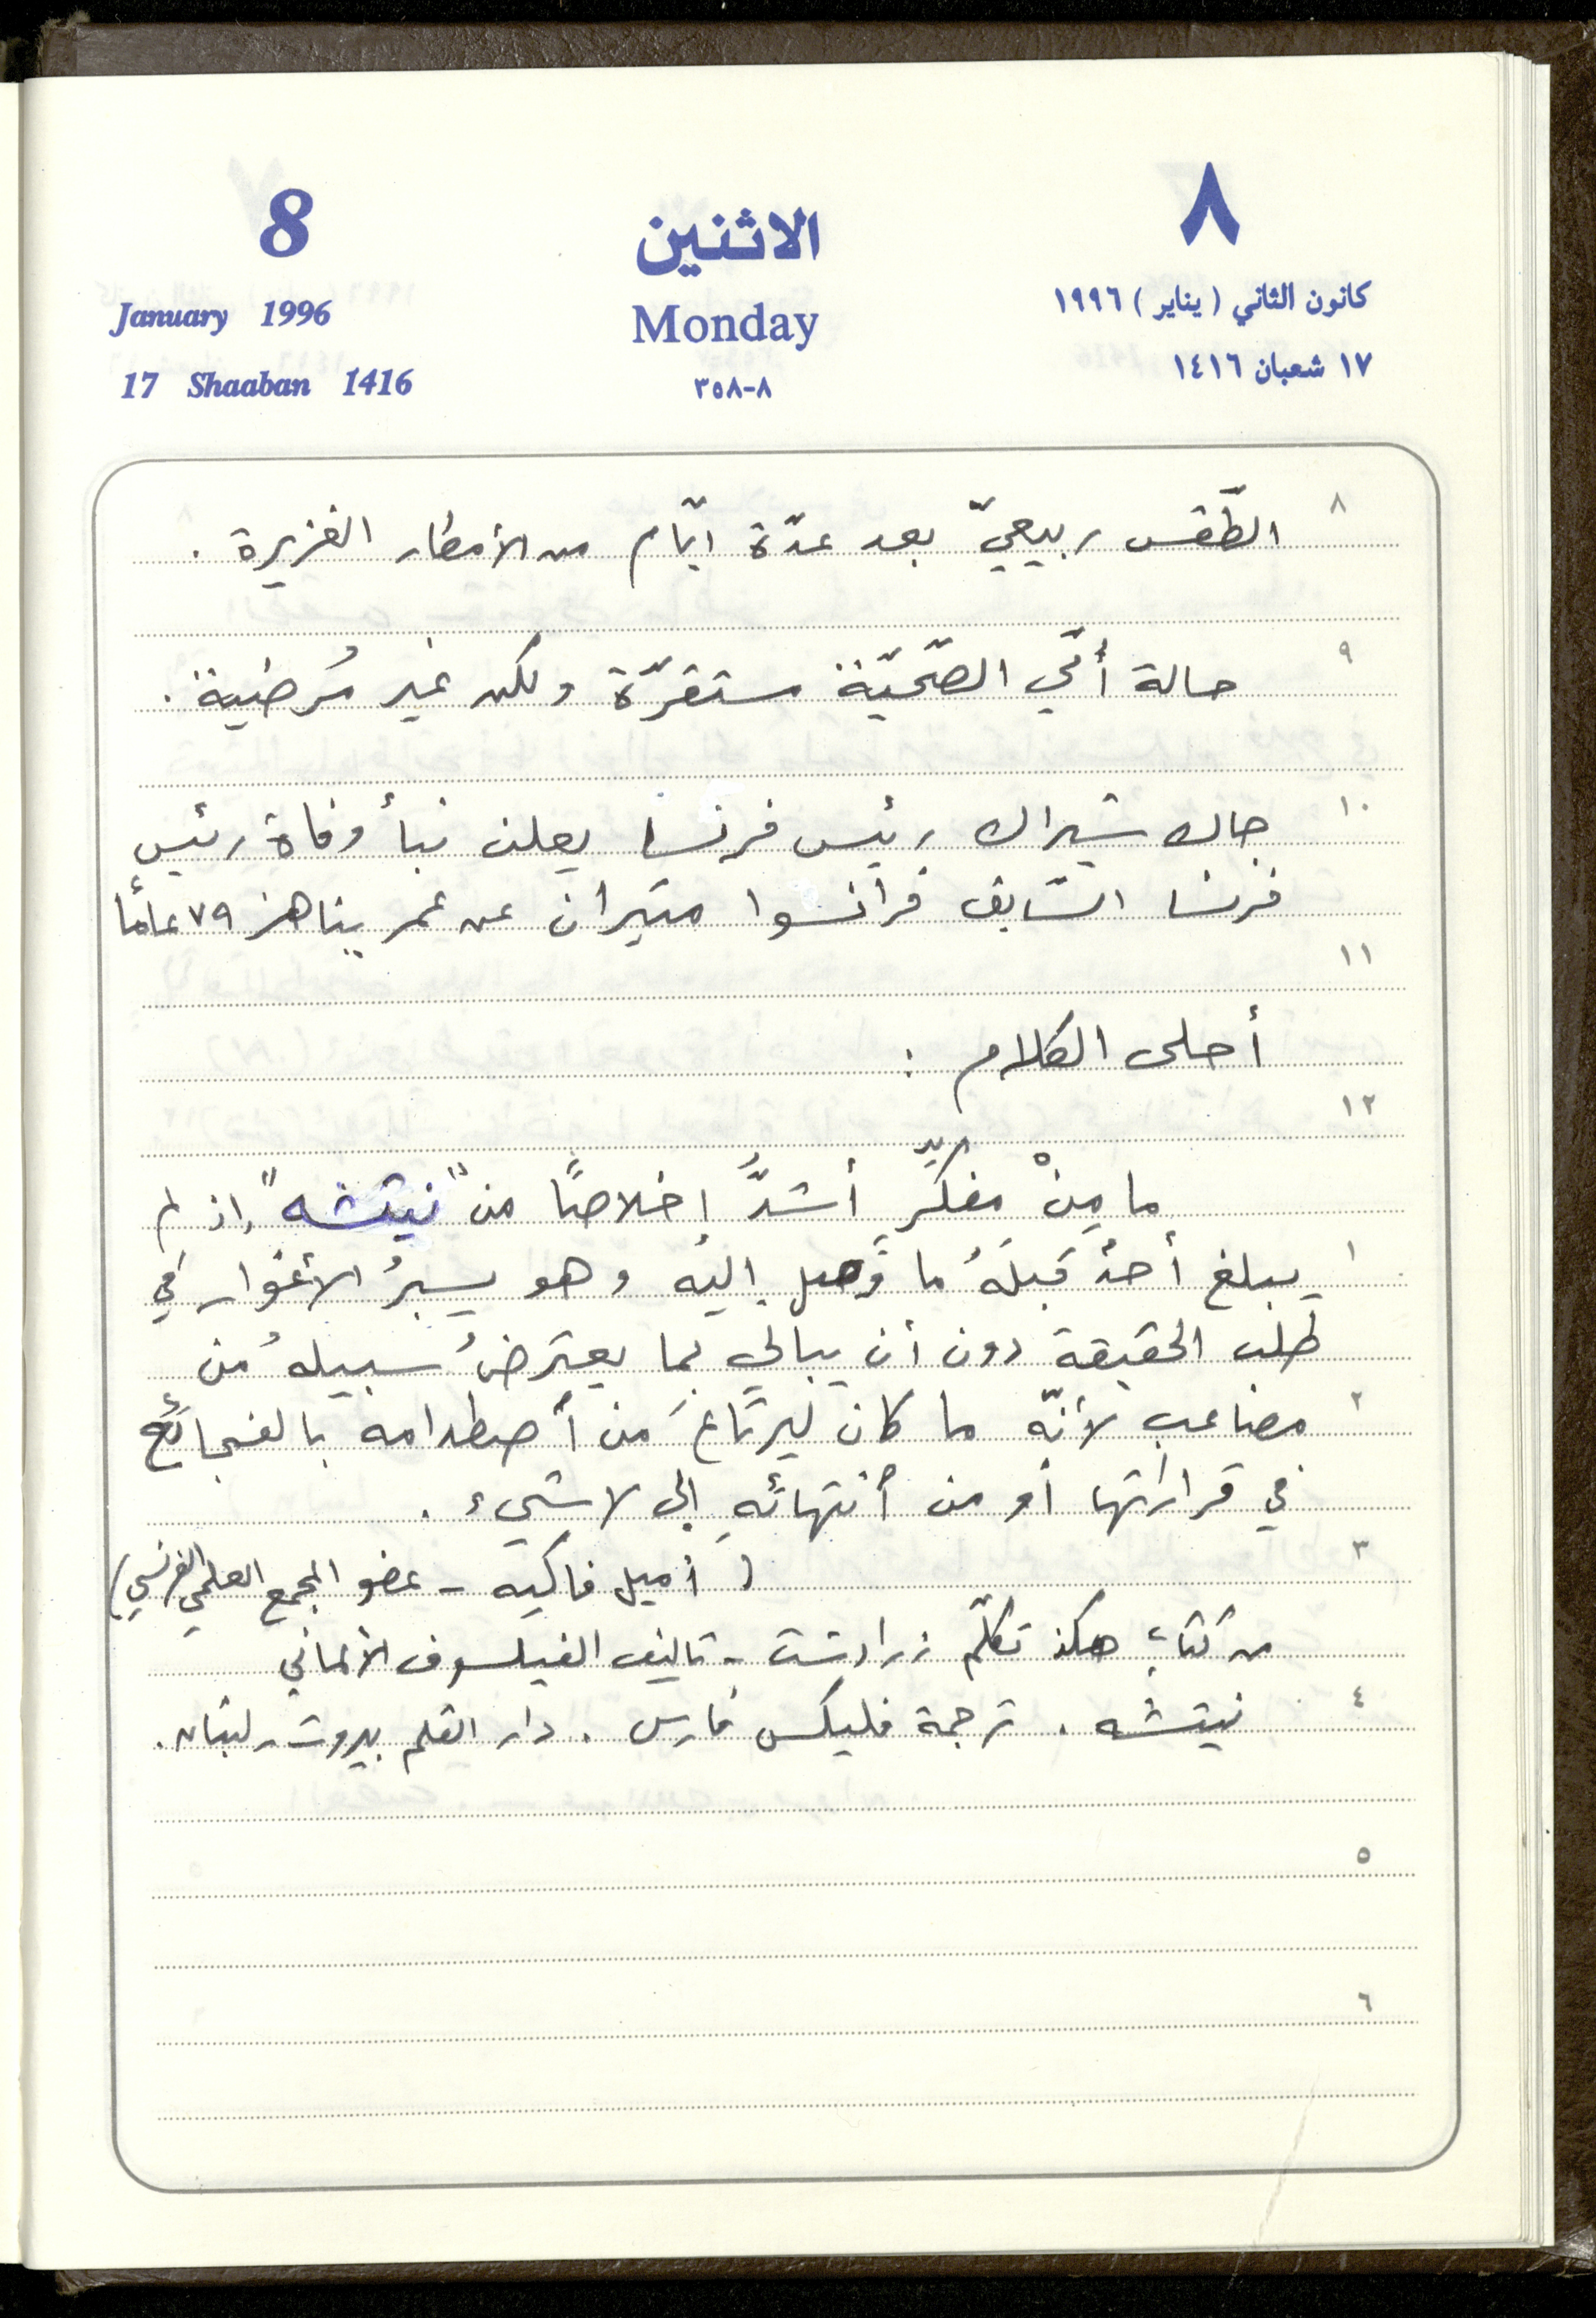 8 الاثنين ٨
January 1996 Monday كانون الثاني (يناير) ١٩٩٦
17 Shaaban 1416 ٨-٣٥٨ ١٧ شعبان ١٤١٦
٨ الطّقس ربيعيّ بعد عدّة ايّام من الأمطار الغزيرة .
٩ حالة أمّي الصّحّيّة مستقرّة ولكن غير مُرضية .
١٠ جاك شيراك رئيس فرنسا يعلن نبأ وفاة رئيس
فرنسا السّابق فرانسوا ميتران عن عمر يناهز ٧٩ عامًا
١١
أحلى الكلام :
١٢
ما مِنْ مفكّرٍ أشدُّ إخلاصًا من "نيتشه" إذ لم
١ يبلغ أحدٌ قبلَهُ ما وصل إليه وهو يسبرُ الأغوار في
طلب الحقيقة دون أن يبالي بما يعترضُ سبيلهُ من
٢ مصاعب لأنّه ما كان ليرتاعَ من أصطدامه بالفجائع
في قرارتها أو من أنتهائهِ إلى لا شيء .
٣ ( أميل فاكيه - عضو المجمع العلمي الفرنسي)
من كتاب هكذ تكلّم زرادشت - تاليف الفيلسوف الألماني
٤ نيتشه . ترجمة فليكس فارس . دار القلم بيروت - لبنان .
٥
٦